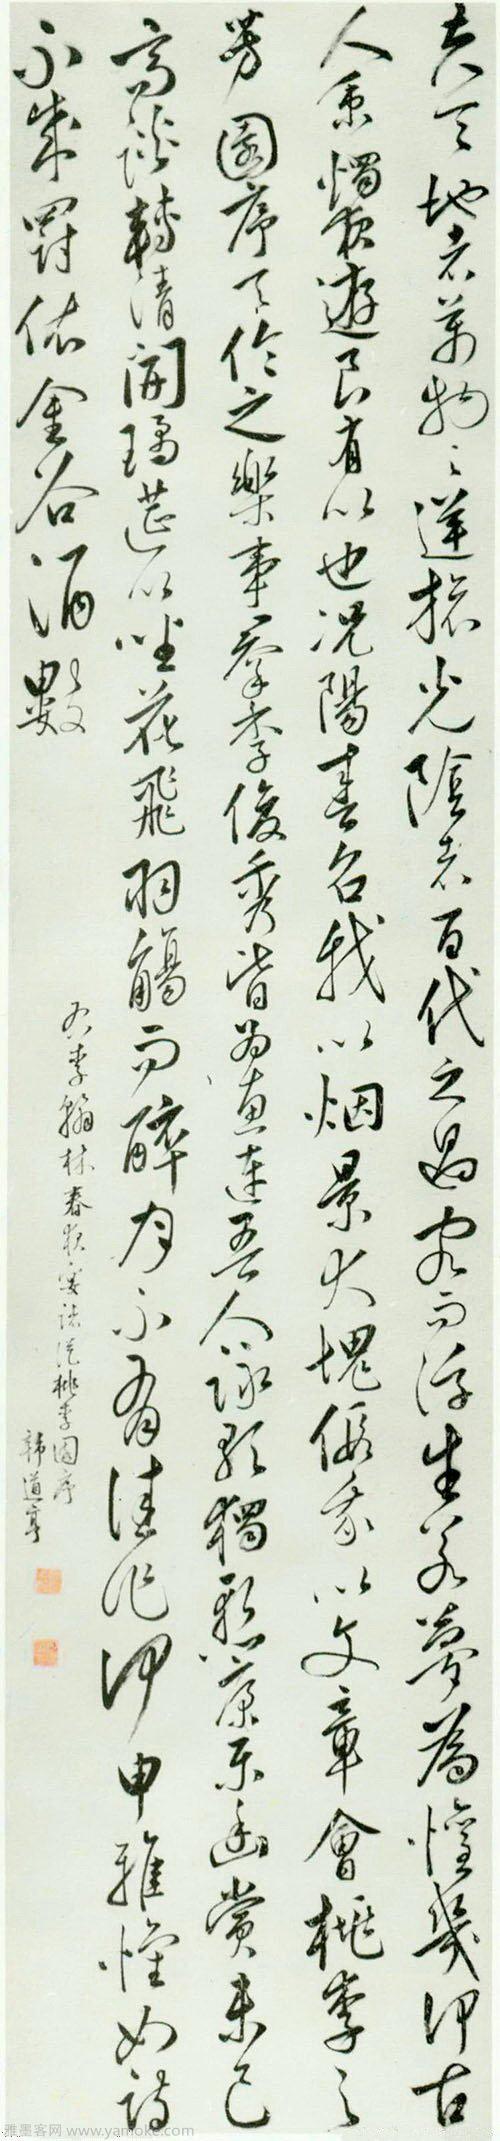 夫天地者萬物之逆旅光陰者百代之過客而浮生若夢為懽幾何古
人秉燭夜遊良有以也況陽春召我以烟景大塊假我以文章會桃李之
芳園序天倫之樂事羣季俊秀皆為惠連吾人詠歌獨慙康樂幽賞未已
高談轉清開瓊筵以坐花飛羽觴而醉月不有佳作何申雅懷如詩
不成罰依金谷酒數
右李翰林春夜宴諸從桃李園序
韓道亨
雅墨客网 www.yamoke.com